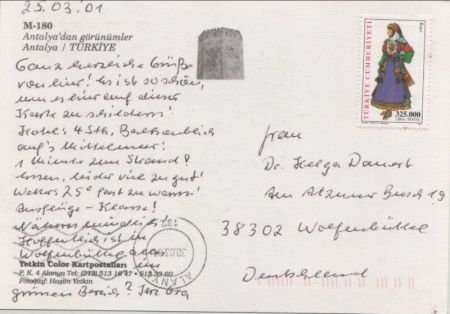 25.03.01
M-180
Antalya'dan görünümler
Antalya / TÜRKİYE
Ganz herzliche Grüße
von hier! Es ist so schön,
um es hier auf dieser
Karte zu schildern!
Hotel: 4 Stk,
auf's Mittelmeer!
1 Minute zum Strand!
Essen, leider viel zu gut!
Wetter, 25° fast zu warm!
Ausflüge - Klasse!
Näheres mündlich!
Hoffentlich ist in
Wolfenbüttel alles
Yetkin Color Kartpostalları
P. K. 4 Alanya Tel: (242) 513 16 47 • 513 33 60
Fotoğraf: Haşim Yetkin
grünen Bereich?
Kars
TÜRKİYE CUMHURİYETİ
325.000
LİRA - POSTA
ALANYA
Frau
Dr. Helga
Am Atzumer Busch 19
38302 Wolfenbüttel
Deutschland